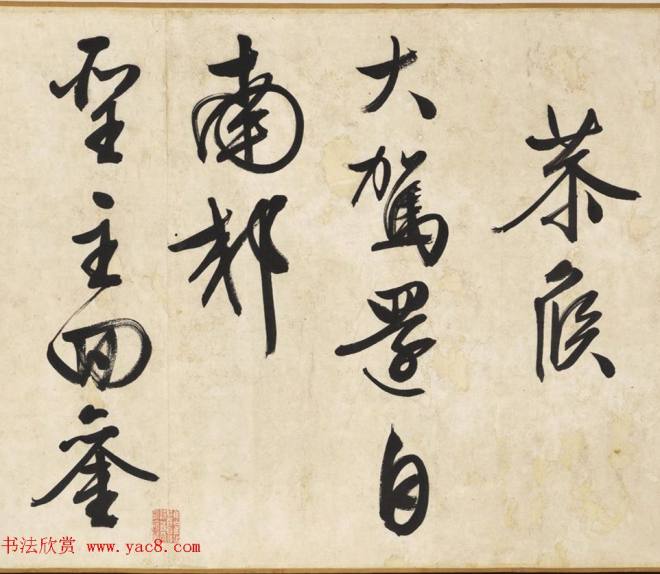 恭候
大駕還自
南郊
聖主回鑾
书法欣赏 www.yac8.com